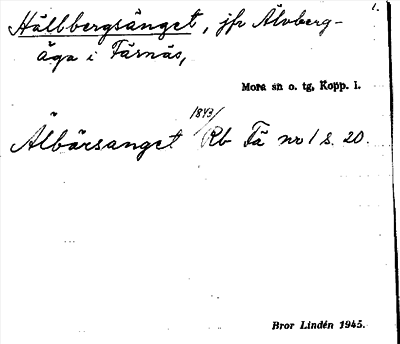 1.
Hällbergsänget, jfr Älvberg-
äga i Färnäs,
Mora sn o. tg, Kopp. l.
Älbärsanget 1843/ Rb Fä nr 1 s. 20.
Bror Lindén 1945.